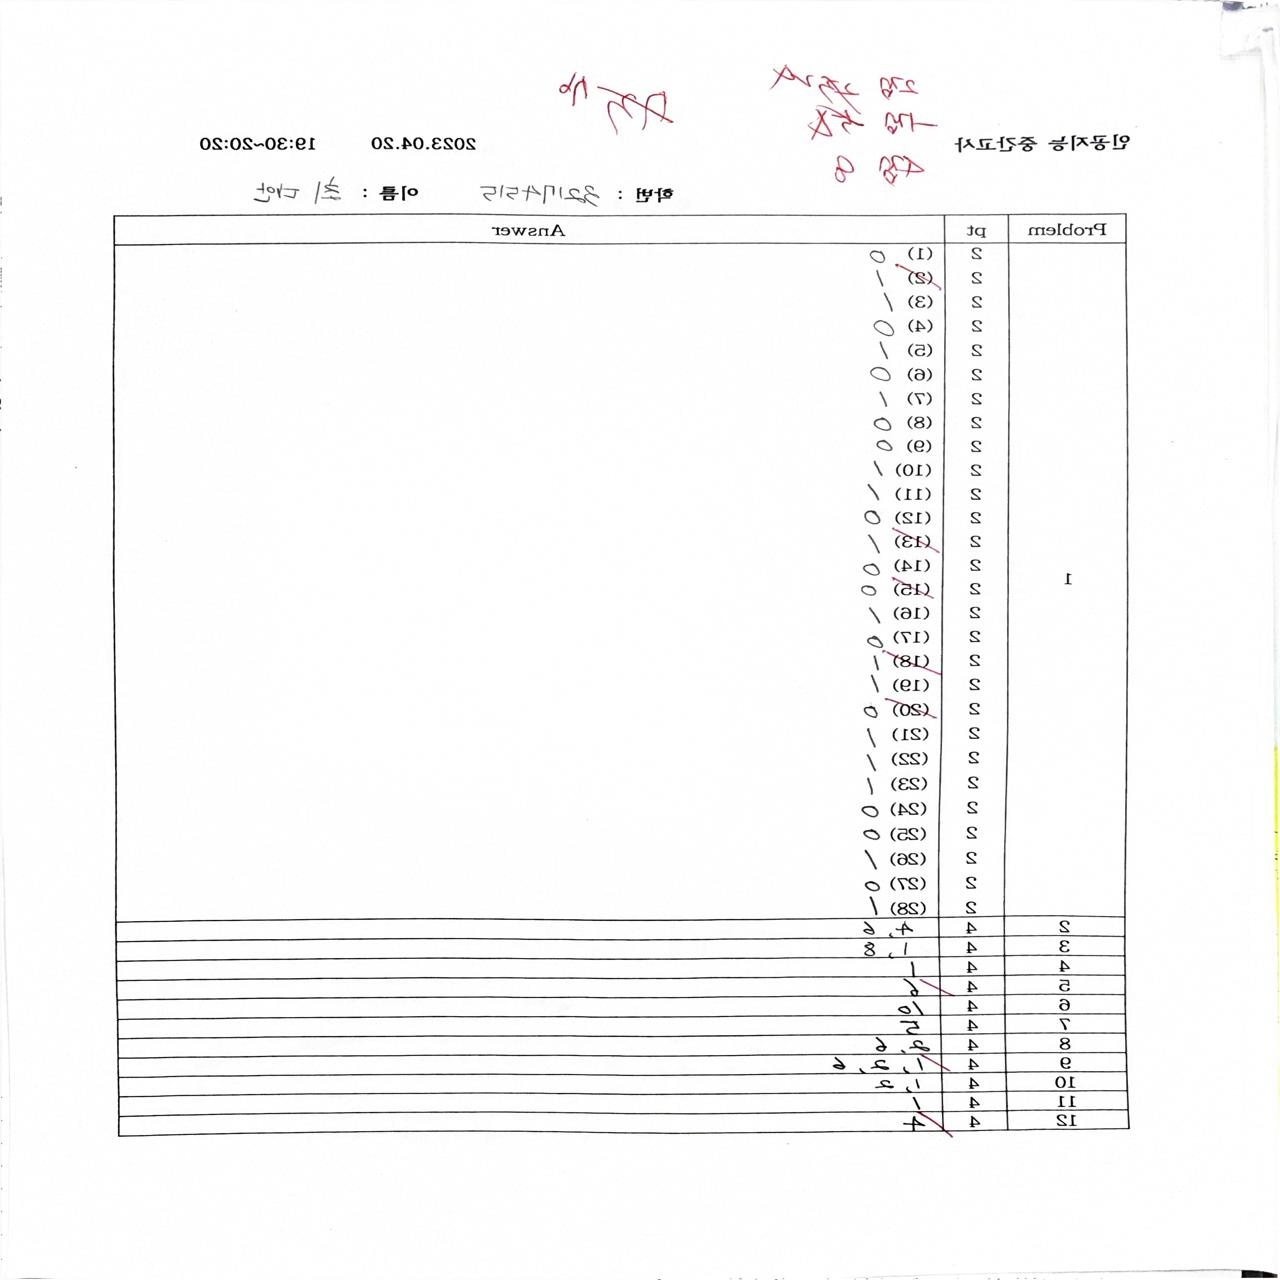 인공지능 중간고사 2023.04.20 19:30~20:20
학번 : 32174515 이름 : 최 다안
Problem pt Answer
1
2 (1) 0
2 (2) 1
2 (3) 1
2 (4) 0
2 (5) 1
2 (6) 0
2 (7) 1
2 (8) 0
2 (9) 0
2 (10) 1
2 (11) 1
2 (12) 0
2 (13) 1
2 (14) 0
2 (15) 0
2 (16) 1
2 (17) 0
2 (18) 1
2 (19) 1
2 (20) 0
2 (21) 1
2 (22) 1
2 (23) 1
2 (24) 0
2 (25) 0
2 (26) 1
2 (27) 0
2 (28) 1
2 4 4, 6
3 4 1, 8
4 4 1
5 4
6 4 10
7 4 5
8 4
9 4
10 4
11 4 1
12 4 4